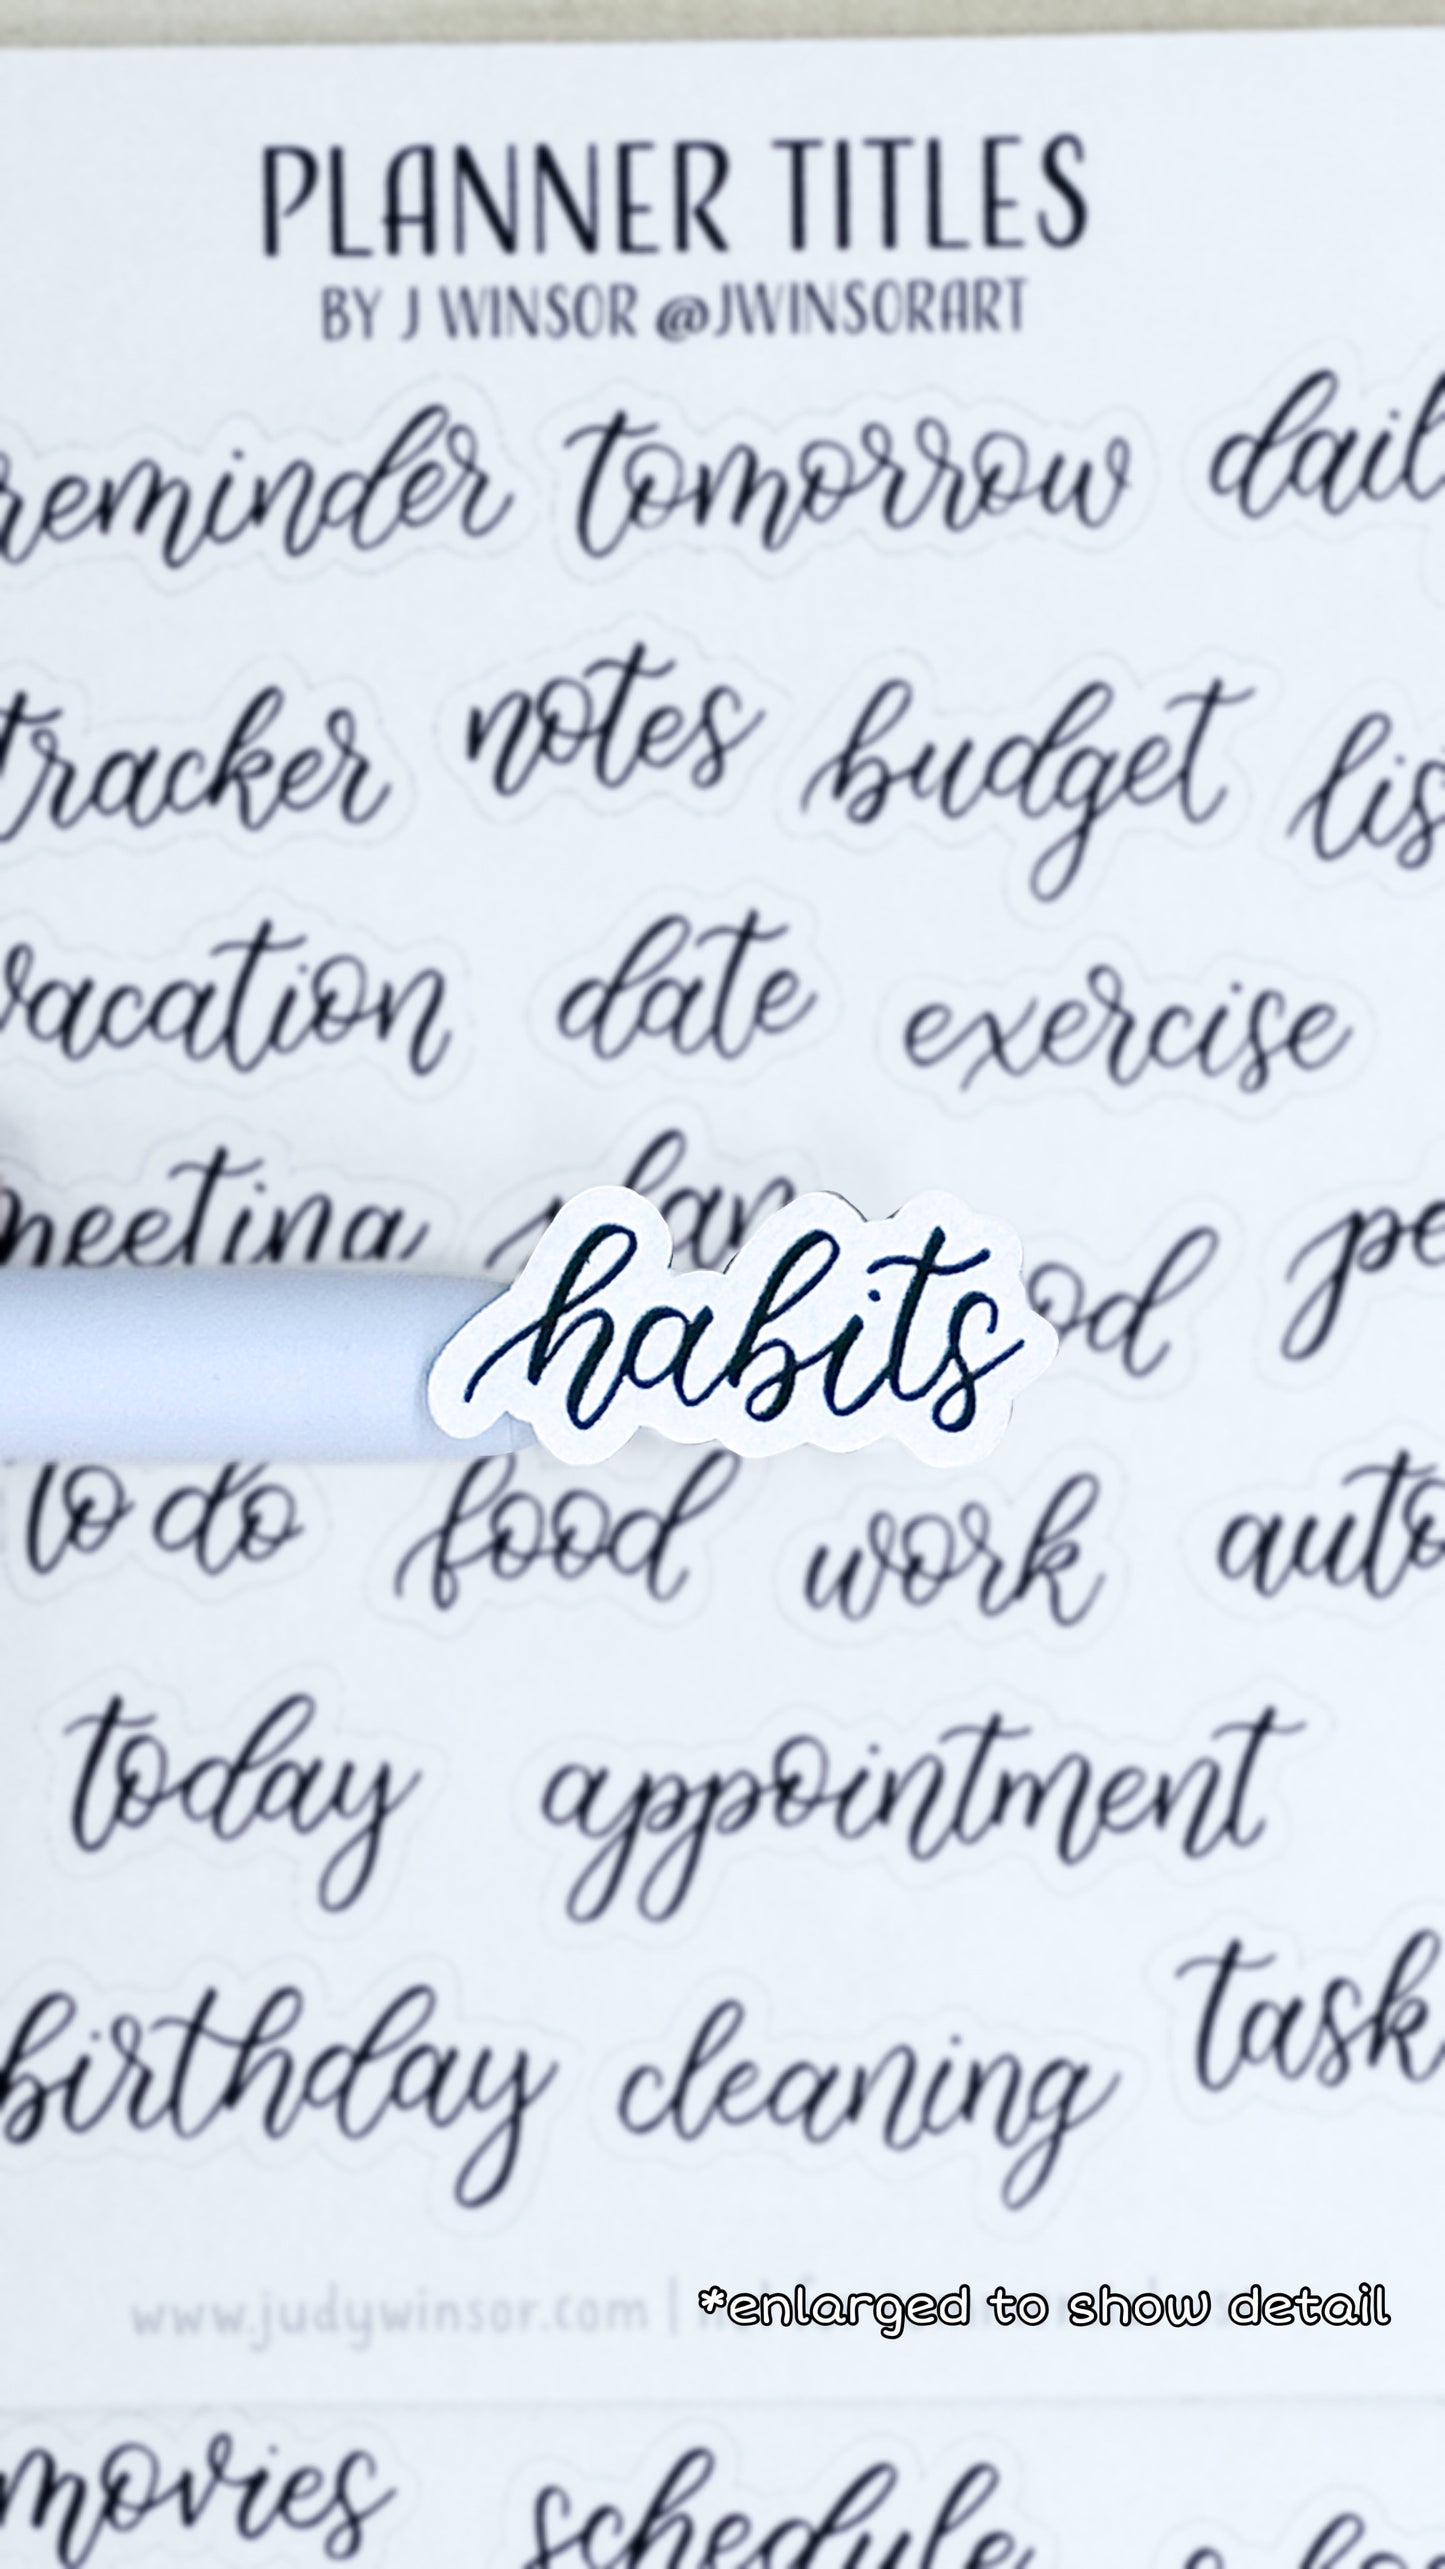 PLANNER TITLES
BY J WINSOR @JWINSORART
reminder tomorrow dail
tracker notes budget lis
vacation date exercise
meeting plan od pe
habits
to do food work auto
today appointment
birthday cleaning task
www.judywinsor.com |
*enlarged to show detail
movies schedule